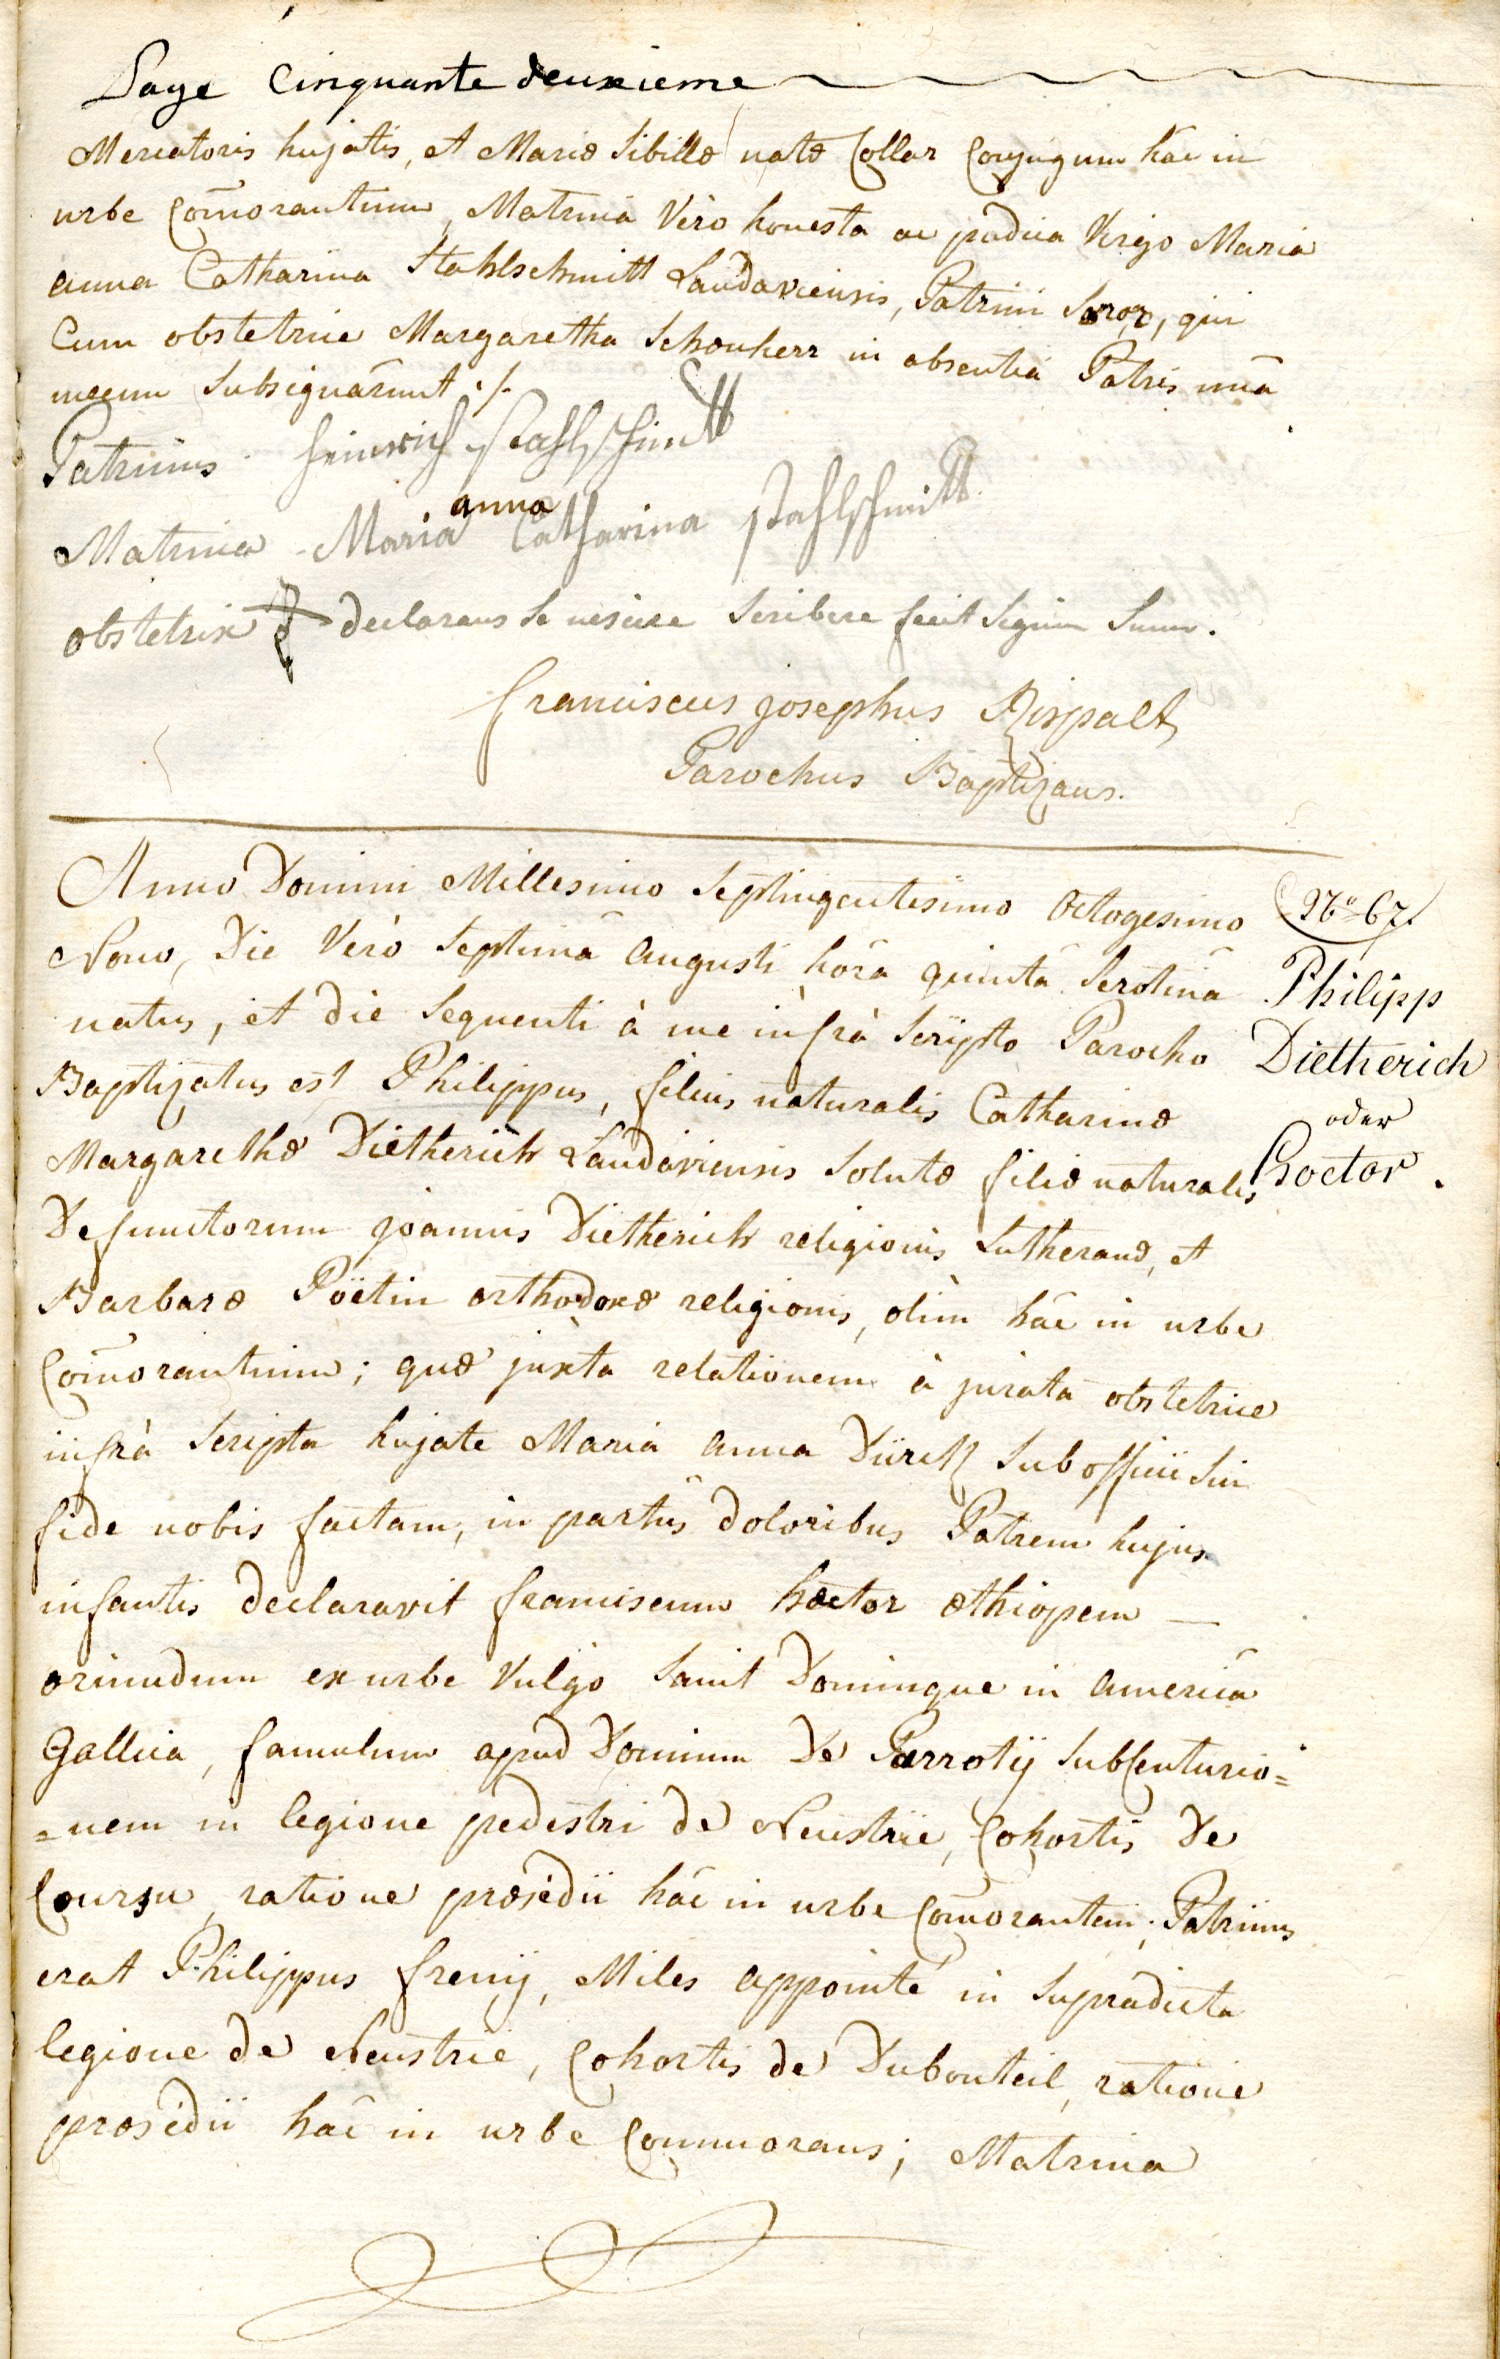 Page Cinquante deuxieme
Mercatoris hujatis, et Mariæ Sibillæ natæ Collar Conjugum hâc in
urbe Com̄orantium, Matrina Verò honesta ac pudica Virgo Maria
anna Catharina Stahlschmitt Landaviensis, Patrini Soror, qui
Cum obstetrice Margaretha Schonherr in absentiâ Patris unâ
mecum Subsignârunt ./.
Patrinus Heinrich Stahlschmitt
anna
Matrina Maria Catharina Stahlschmitt
obstetrix declarans se nescire Scribere fecit Signum Suum.
franciscus josephus Rispalt
Parochus Baptizans.
Anno Domini Millesimo Septingentesimo Octogesimo
Nono, Die Verò Septimâ Augusti horâ quintâ Serotinâ
natus, et die Sequenti à me infrà Scripto Parocho
Baptizatus est Philippus, filius naturalis Catharinæ
Margarethæ Dietherich Landaviensis Solutæ filiæ naturalis
Defunctorum joannis Dietherich religionis Lutheranæ, et
Barbaræ Poëtin orthodoxæ religionis, olim hâc in urbe
Com̄orantium; quæ juxta relationem à jurata obstetrice
infrà Scripta hujate Maria Anna Dürch Sub officii Sui
fide nobis factam, in partûs doloribus Patrem hujus
infantis declaravit franciscum hoctor æthiopem —
oriundum ex urbe Vulgo Saint Domingue in Americâ
Gallica, famulum apud Dominum De Parrotÿ SubCenturio=
=nem in legione pedestri de Neustrie, Cohortis De
Coursu, ratione præsidii hâc in urbe Com̄orantem; Patrinus
erat Philippus frenÿ, Miles appointé in Supradicta
legione de Neustrie, Cohortis de Dubouteil, ratione
præsidii hâc in urbe Commorans; Matrina
No. 67.
Philipp
Dietherich
oder
Hoctor.